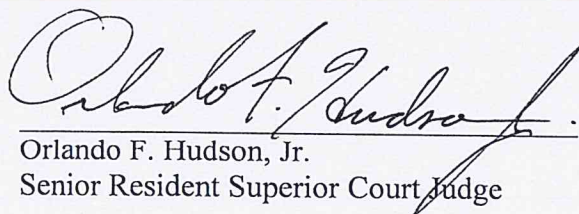 Orlando F. Hudson Jr.
Orlando F. Hudson, Jr.
Senior Resident Superior Court Judge